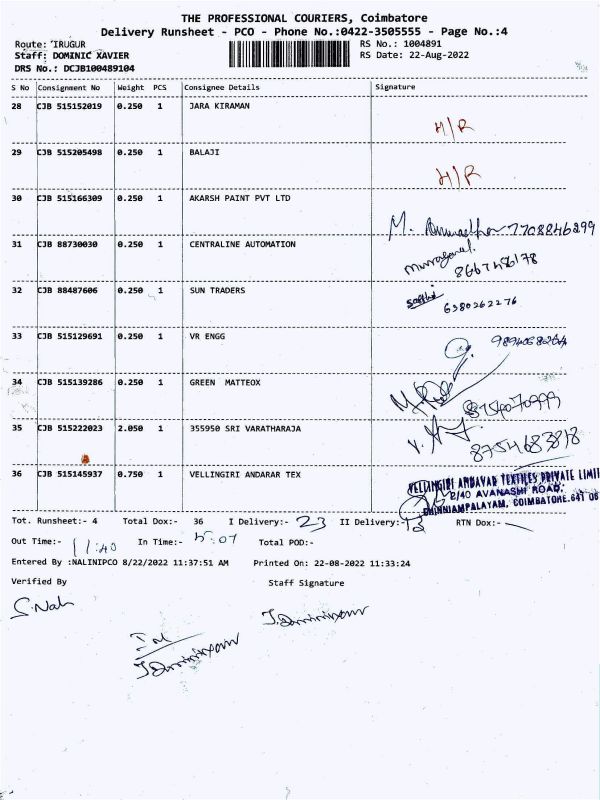 THE PROFESSIONAL COURIERS, Coimbatore
Delivery Runsheet - PCO - Phone No.:0422-3505555 - Page No.:4
Route: IRUGUR RS No.: 1004891
Staff: DOMINIC XAVIER RS Date: 22-Aug-2022
DRS No.: DCJB100489104
S No Consignment No Weight PCS Consignee Details Signature
28 CJB 515152019 0.250 1 JARA KIRAMAN
H/R
29 CJB 515205498 0.250 1 BALAJI
H/R
30 CJB 515166309 0.250 1 AKARSH PAINT PVT LTD
M. 7708846299
31 CJB 88730030 0.250 1 CENTRALINE AUTOMATION
32 CJB 88487606 0.250 1 SUN TRADERS
6380262276
33 CJB 515129691 0.250 1 VR ENGG
34 CJB 515139286 0.250 1 GREEN MATTEOX
35 CJB 515222023 2.050 1 355950 SRI VARATHARAJA
36 CJB 515145937 0.750 1 VELLINGIRI ANDARAR TEX
VELLINGIRI ANDAVAR TEXTILES PRIVATE LIMI
2/40 AVANASHI ROAD,
CHINNIAMPALAYAM, COIMBATORE.641 06
Tot. Runsheet:- 4 Total Dox:- 36 I Delivery:- 23 II Delivery:- 13 RTN Dox:-
Out Time:- 11:40 In Time:- 5:07 Total POD:-
Entered By :NALINIPCO 8/22/2022 11:37:51 AM Printed On: 22-08-2022 11:33:24
Verified By Staff Signature